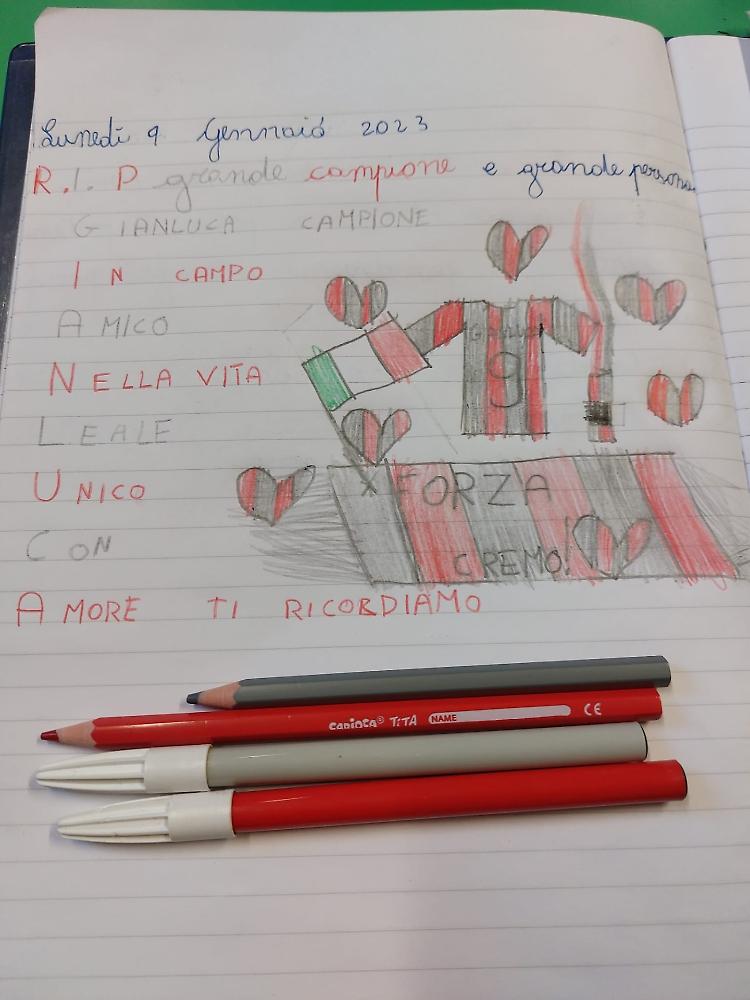 Lunedì 9 Gennaió 2023
R.I.P grande campione e grande persona
GIANLUCA CAMPIONE
IN CAMPO
AMICO
NELLA VITA
LEALE
9
UNICO
X FORZA
CON
CREMO!
AMORE TI RICORDIAMO
CARIOCA® TITA NAME CE